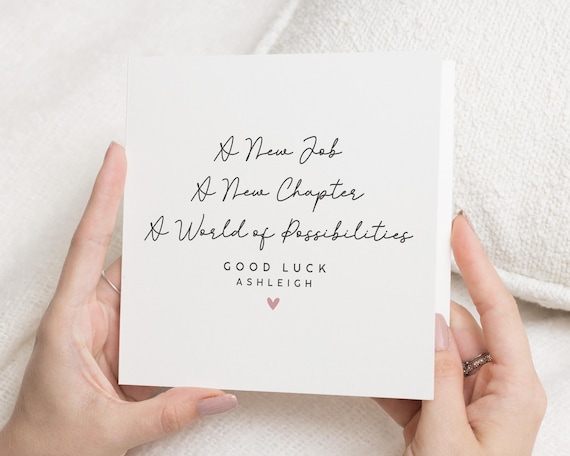 A New Job
A New Chapter
A World of Possibilities
GOOD LUCK
ASHLEIGH